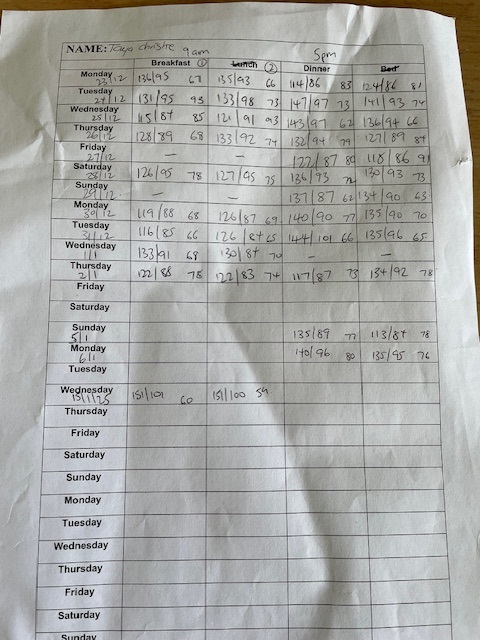 NAME: Taya christre 9am 5pm
Breakfast ① Lunch ② Dinner Bed
Monday 23/12 136/95 67 135/93 66 114/86 83 124/86 81
Tuesday 24/12 131/95 93 133/98 73 147/97 73 141/93 74
Wednesday 25/12 115/84 85 121/91 93 143/97 62 136/94 66
Thursday 26/12 128/89 68 133/92 74 132/94 79 127/89 84
Friday 27/12 — — 122/87 80 118/86 91
Saturday 28/12 126/95 78 127/95 75 136/93 72 130/93 73
Sunday 29/12 — — 137/87 62 134/90 63
Monday 30/12 119/88 68 126/87 69 140/90 77 135/90 70
Tuesday 31/12 116/85 66 126/84 65 144/101 66 135/96 65
Wednesday 1/1 133/91 68 130/84 70 — —
Thursday 2/1 122/88 78 122/83 74 117/87 73 134/92 78
Friday
Saturday
Sunday 5/1 135/89 77 113/84 78
Monday 6/1 140/96 80 135/95 76
Tuesday
Wednesday 15/1/25 151/101 60 151/100 59
Thursday
Friday
Saturday
Sunday
Monday
Tuesday
Wednesday
Thursday
Friday
Saturday
Sunday